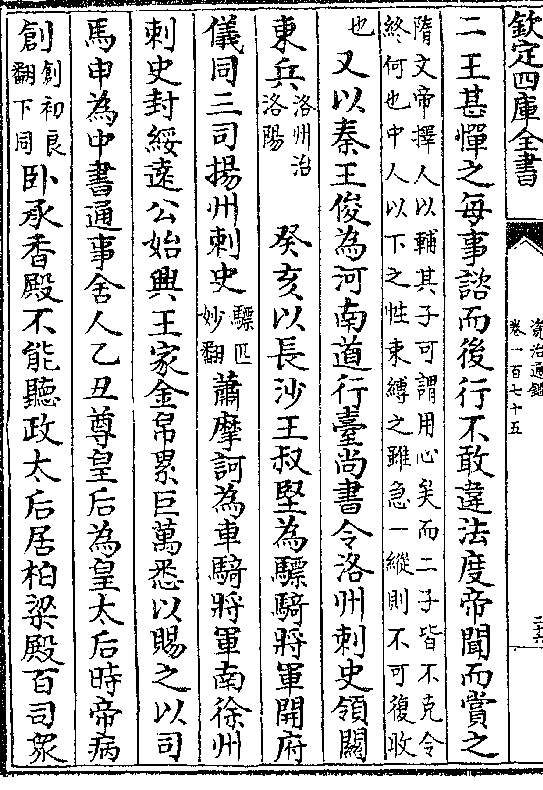 欽定四庫全書
資治通鑑
卷一百七十五
二王甚憚之每事諮而後行不敢違法度帝聞而賞之
隋文帝擇人以輔其子可謂用心矣而二子皆不克令
終何也中人以下之性束縛之雖急一縱則不可復收
也又以秦王俊為河南道行臺尚書令洛州刺史領關
東兵洛州治洛陽癸亥以長沙王叔堅為驃騎將軍開府
儀同三司揚州刺史驃匹妙翻蕭摩訶為車騎將軍南徐州
刺史封綏遠公始興王家金帛累巨萬悉以賜之以司
馬申為中書通事舍人乙丑尊皇后為皇太后時帝病
創創初良翻下同卧承香殿不能聽政太后居柏梁殿百司衆